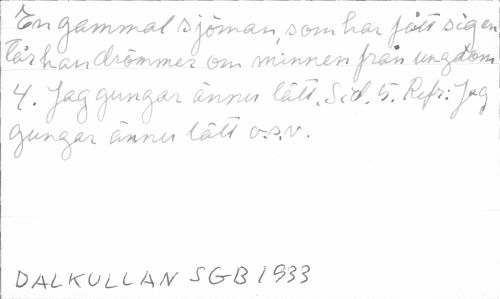 En gammal sjöman, som har fått sig en
tår han drömmer om minnen från ungdom
4. Jag gungar ännu lätt. Sid. 5. Refr: Jag
gungar ännu lätt o.s.v.
DALKULLAN SGB 1933